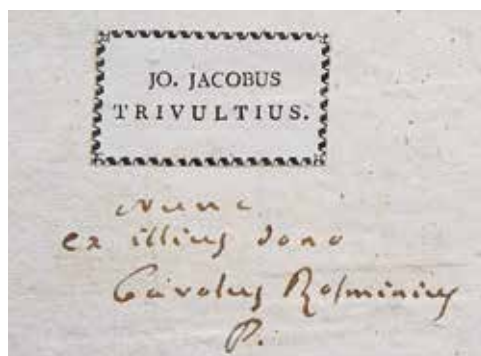 JO. JACOBUS
TRIVULTIUS.
Nunc
ex illius dono
Carolus Rosminius
P.